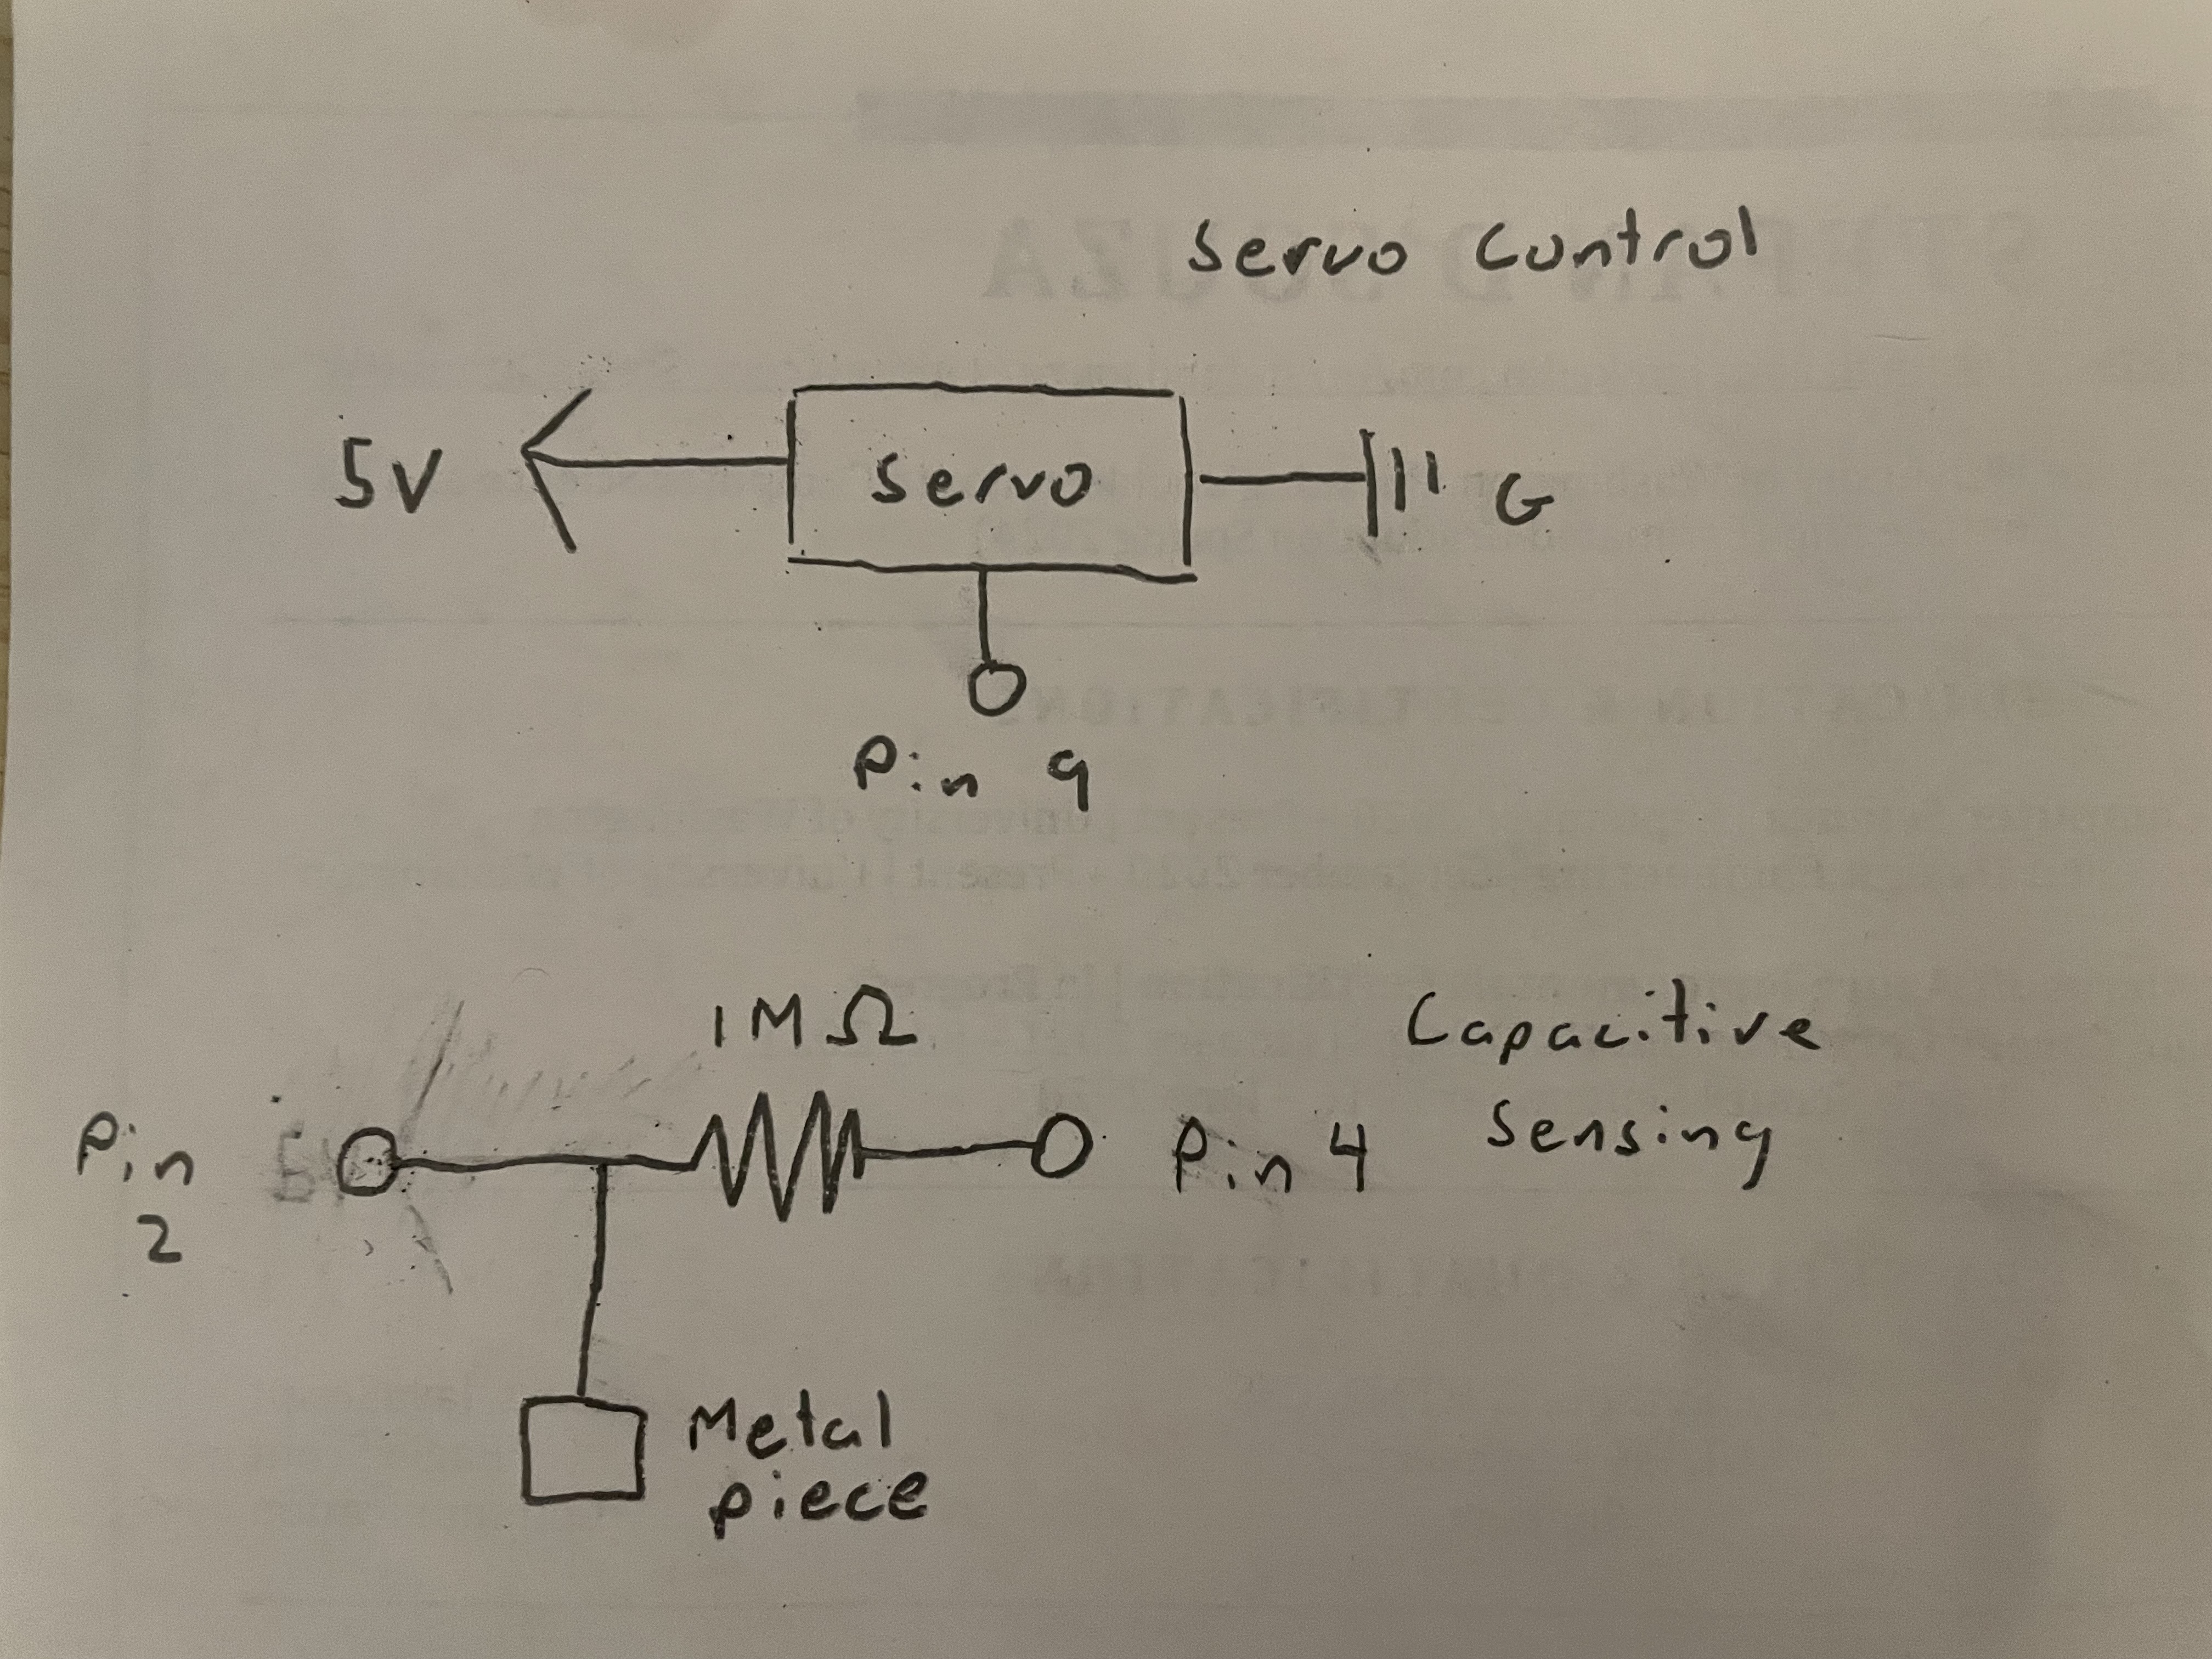 Servo Control
5V
Servo
G
Pin 9
1MΩ
Capacitive
Sensing
Pin
2
Pin 4
Metal
piece